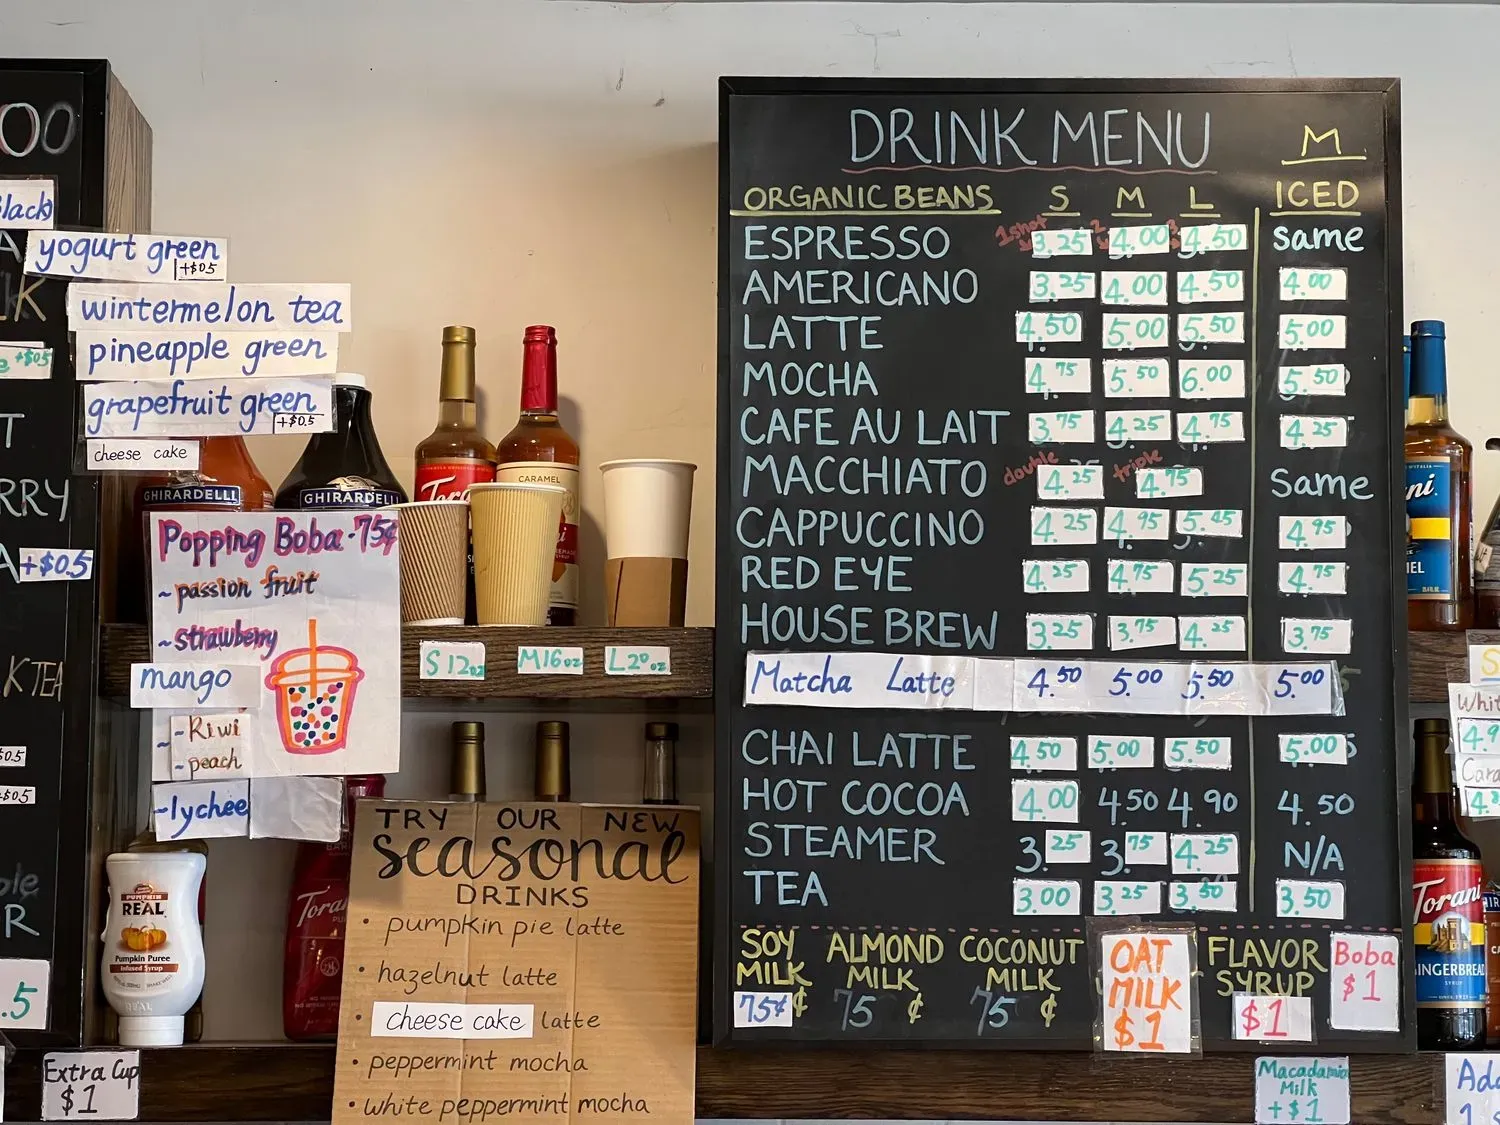 OO
Black)
yogurt green +$05
wintermelon tea
pineapple green
+$05
grapefruit green +$05
cheese cake
RRY
+$0.5
K TEA
$0.5
+$0.5
R
.5
GHIRARDELLI
GHIRARDELLI
Torani
CARAMEL
Popping Boba-75¢
~passion fruit
~strawberry
mango
~-Kiwi
~peach
~lychee
S 12oz
M16oz
L20oz
PUMPKIN
REAL
Pumpkin Puree
Infused Syrup
REAL
Torani
Extra Cup
$1
TRY OUR NEW
seasonal
DRINKS
• pumpkin pie latte
• hazelnut latte
• cheese cake latte
• peppermint mocha
• white peppermint mocha
DRINK MENU M
ORGANIC BEANS S M L ICED
ESPRESSO 1shot 3.25 2 4.00 3 4.50 same
AMERICANO 3.25 4.00 4.50 4.00
LATTE 4.50 5.00 5.50 5.00
MOCHA 4.75 5.50 6.00 5.50
CAFE AU LAIT 3.75 4.25 4.75 4.25
MACCHIATO double 4.25 triple 4.75 Same
CAPPUCCINO 4.25 4.95 5.45 4.95
RED EYE 4.25 4.75 5.25 4.75
HOUSE BREW 3.25 3.75 4.25 3.75
Matcha Latte 4.50 5.00 5.50 5.00
CHAI LATTE 4.50 5.00 5.50 5.00
HOT COCOA 4.00 4.50 4.90 4.50
STEAMER 3.25 3.75 4.25 N/A
TEA 3.00 3.25 3.50 3.50
SOY MILK 75¢
ALMOND MILK 75¢
COCONUT MILK 75¢
OAT MILK $1
FLAVOR SYRUP $1
Boba $1
Macadamia
Milk
+$1
Torani
GINGERBREAD
SYRUP